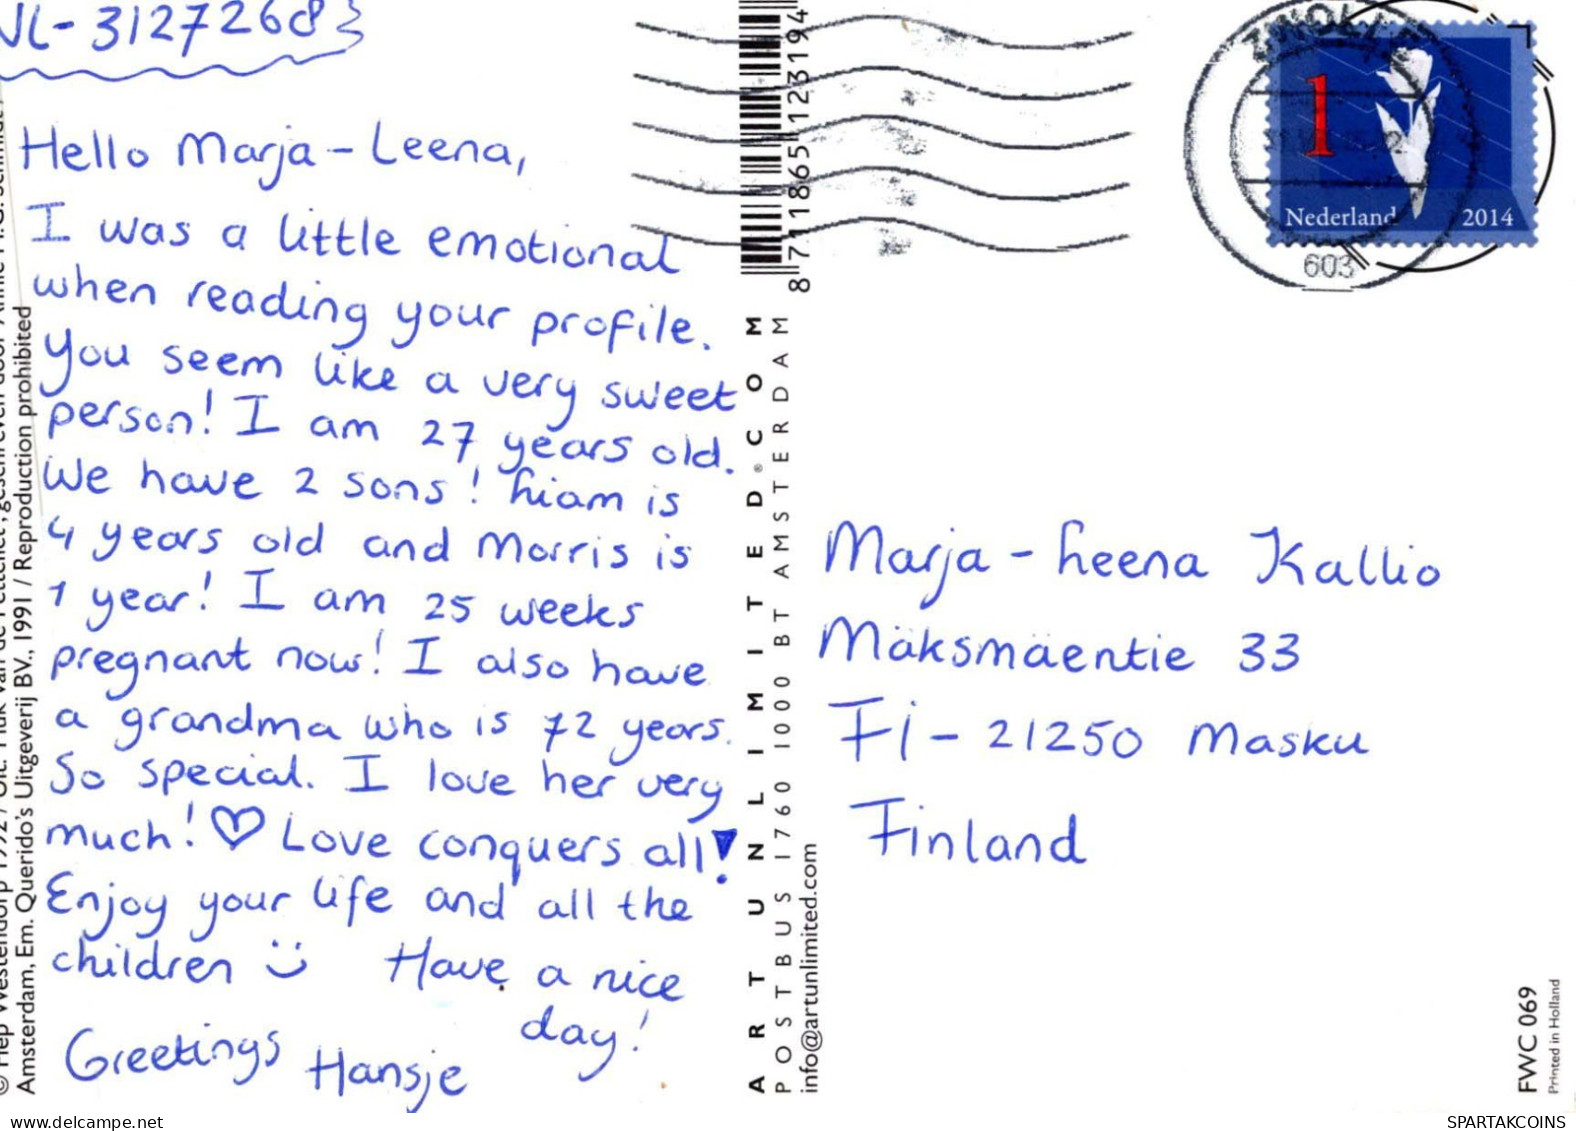 NL-3127268
Hello Marja-Leena,
I was a little emotional
when reading your profile.
You seem like a very sweet
person! I am 27 years old.
We have 2 sons! Liam is
4 years old and Morris is
1 year! I am 25 weeks
pregnant now! I also have
a grandma who is 72 years.
So special. I love her very
much! ♡ Love conquers all!
Enjoy your life and all the
children :) Have a nice
day!
Greetings Hansje
Amsterdam, Em. Querido's Uitgeverij BV., 1991 / Reproduction prohibited
8 711865 123194
ART UNLIMITED®.COM
POSTBUS 1760 1000 BT AMSTERDAM
info@artunlimited.com
ZWOLLE
1
Nederland 2014
603
Marja-Leena Kallio
Mäksmäentie 33
Fi-21250 Masku
Finland
FWC 069
Printed in Holland
www.delcampe.net
SPARTAKCOINS